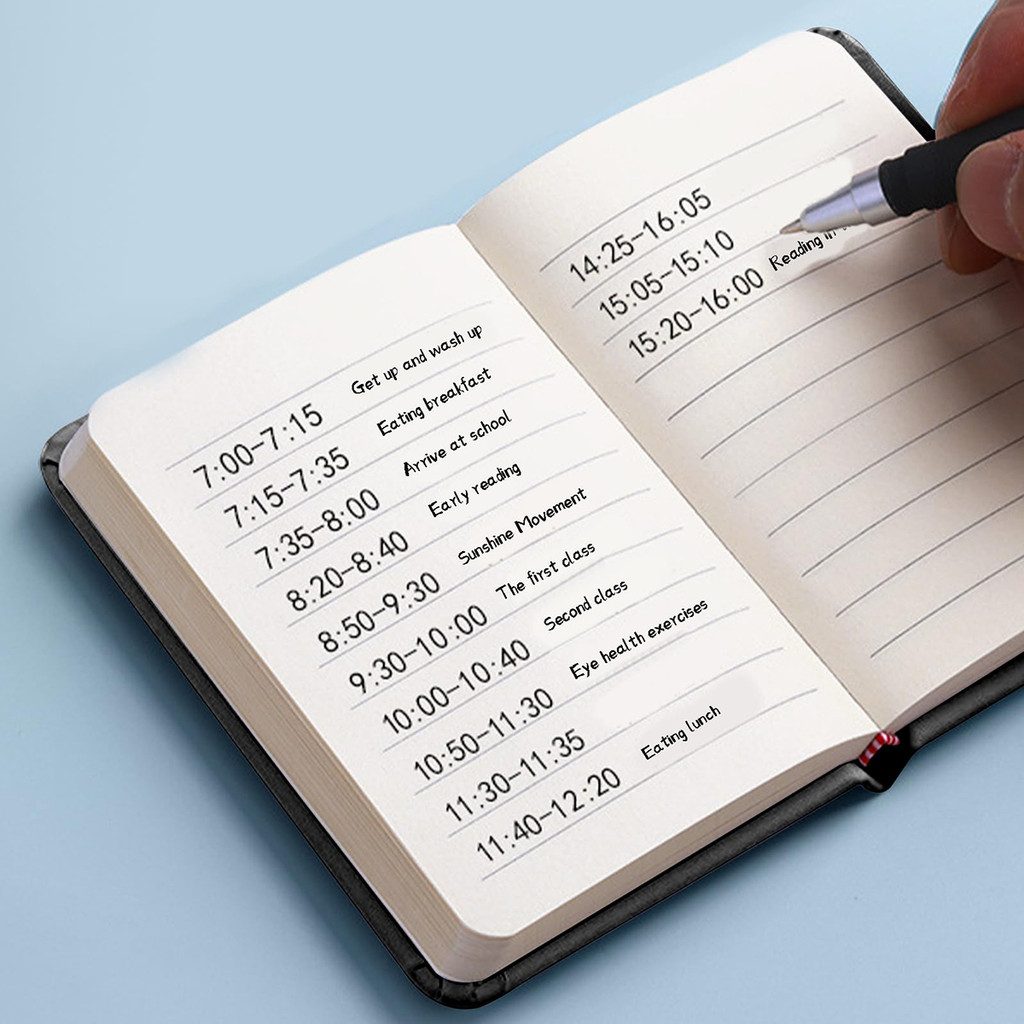 7:00-7:15 Get up and wash up
7:15-7:35 Eating breakfast
7:35-8:00 Arrive at school
8:20-8:40 Early reading
8:50-9:30 Sunshine Movement
9:30-10:00 The first class
10:00-10:40 Second class
10:50-11:30 Eye health exercises
11:30-11:35
11:40-12:20 Eating lunch
14:25-16:05
15:05-15:10
15:20-16:00 Reading in